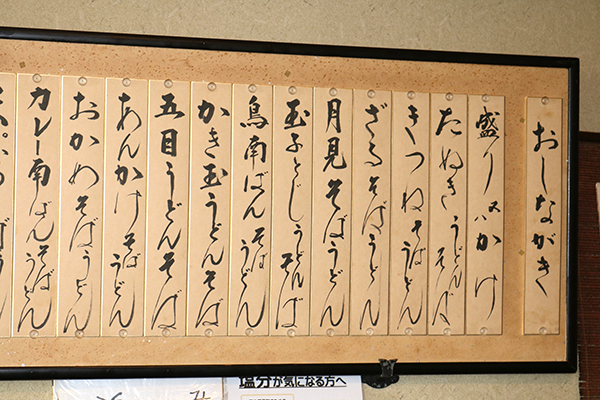 おしながき
盛り 又は かけ
たぬき うどん そば
きつね そば うどん
ざるそば うどん
月見そばうどん
玉子とじ うどん そば
鳥南ばん そば うどん
かき玉うどんそば
五目うどんそば
あんかけ そば うどん
おかめそばうどん
カレー南ばんそばうどん
塩分が気になる方へ